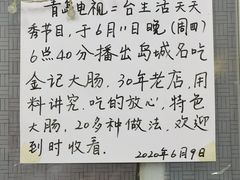 青岛电视二台生活天天
秀节目,于6月11日晚(周四)
6点40分播出岛城名吃
金记大肠,30年老店,用
料讲究,吃的放心,特色
大肠,20多种做法,欢迎
到时收看.
2020年6月9日